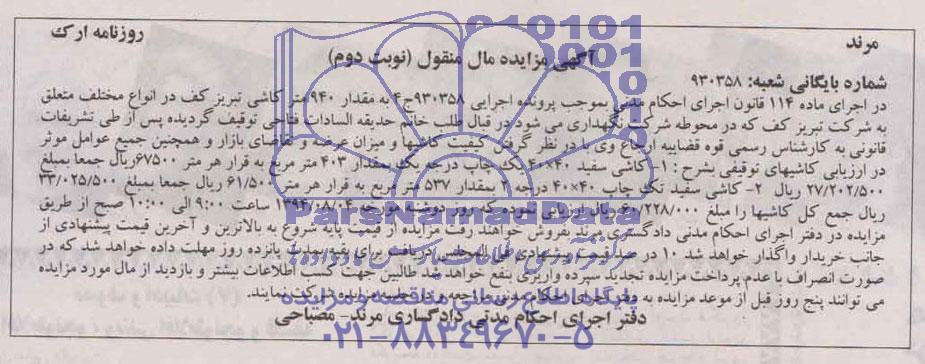 مرند
روزنامه ارک
آگهی مزایده مال منقول (نوبت دوم)
شماره بایگانی شعبه: ۹۳۰۳۵۸
در اجرای ماده ۱۱۴ قانون اجرای احکام مدنی بموجب پرونده اجرایی ۹۳۰۳۵۸ج۴ به مقدار ۹۴۰ متر کاشی تبریز کف در انواع مختلف متعلق
به شرکت تبریز کف که در محوطه شرکت نگهداری می شود در قبال طلب خانم حدیقه السادات فتاحی توقیف گردیده پس از طی تشریفات
قانونی به کارشناس رسمی قوه قضاییه ارجاع وی با در نظر گرفتن کیفیت کاشیها و میزان عرضه و تقاضای بازار و همچنین جمیع عوامل موثر
در ارزیابی کاشیهای توقیفی بشرح : ۱- کاشی سفید ۴۰×۴۰ تک چاپ درجه یک بمقدار ۴۰۳ متر مربع به قرار هر متر ۶۷۵۰۰ریال جمعا بمبلغ
۲۷/۲۰۲/۵۰۰ ریال ۲- کاشی سفید تک چاپ ۴۰×۴۰ درجه ۲ بمقدار ۵۳۷ متر مربع به قرار هر متر ۶۱/۵۰۰ ریال جمعا بمبلغ ۳۳/۰۲۵/۵۰۰
ریال جمع کل کاشیها را مبلغ ۶۰/۲۲۸/۰۰۰ ریال ارزیابی نموده که روز دوشنبه مورخه ۱۳۹۴/۰۸/۰۴ ساعت ۹:۰۰ الی ۱۰:۰۰ صبح از طریق
مزایده در دفتر اجرای احکام مدنی دادگستری مرند بفروش خواهند رفت مزایده از قیمت پایه شروع به بالاترین و آخرین قیمت پیشنهادی از
جانب خریدار واگذار خواهد شد ۱۰ در صد قیمت پیشنهادی فی المجلس دریافت برای بقیه بمدت پانزده روز مهلت داده خواهد شد که در
صورت انصراف با عدم پرداخت مزایده تجدید سپرده واریزی بنفع خواهد شد طالبین جهت کسب اطلاعات بیشتر و بازدید از مال مورد مزایده
می توانند پنج روز قبل از موعد مزایده به دفتر اجرای احکام مدنی مراجعه و در جلسه مزایده شرکت نمایند.
دفتر اجرای احکام مدنی دادگستری مرند- مصباحی
ParsNamadData
پایگاه اطلاع رسانی مناقصه و مزایده
۰۲۱-۸۸۳۴۹۶۷۰-۵